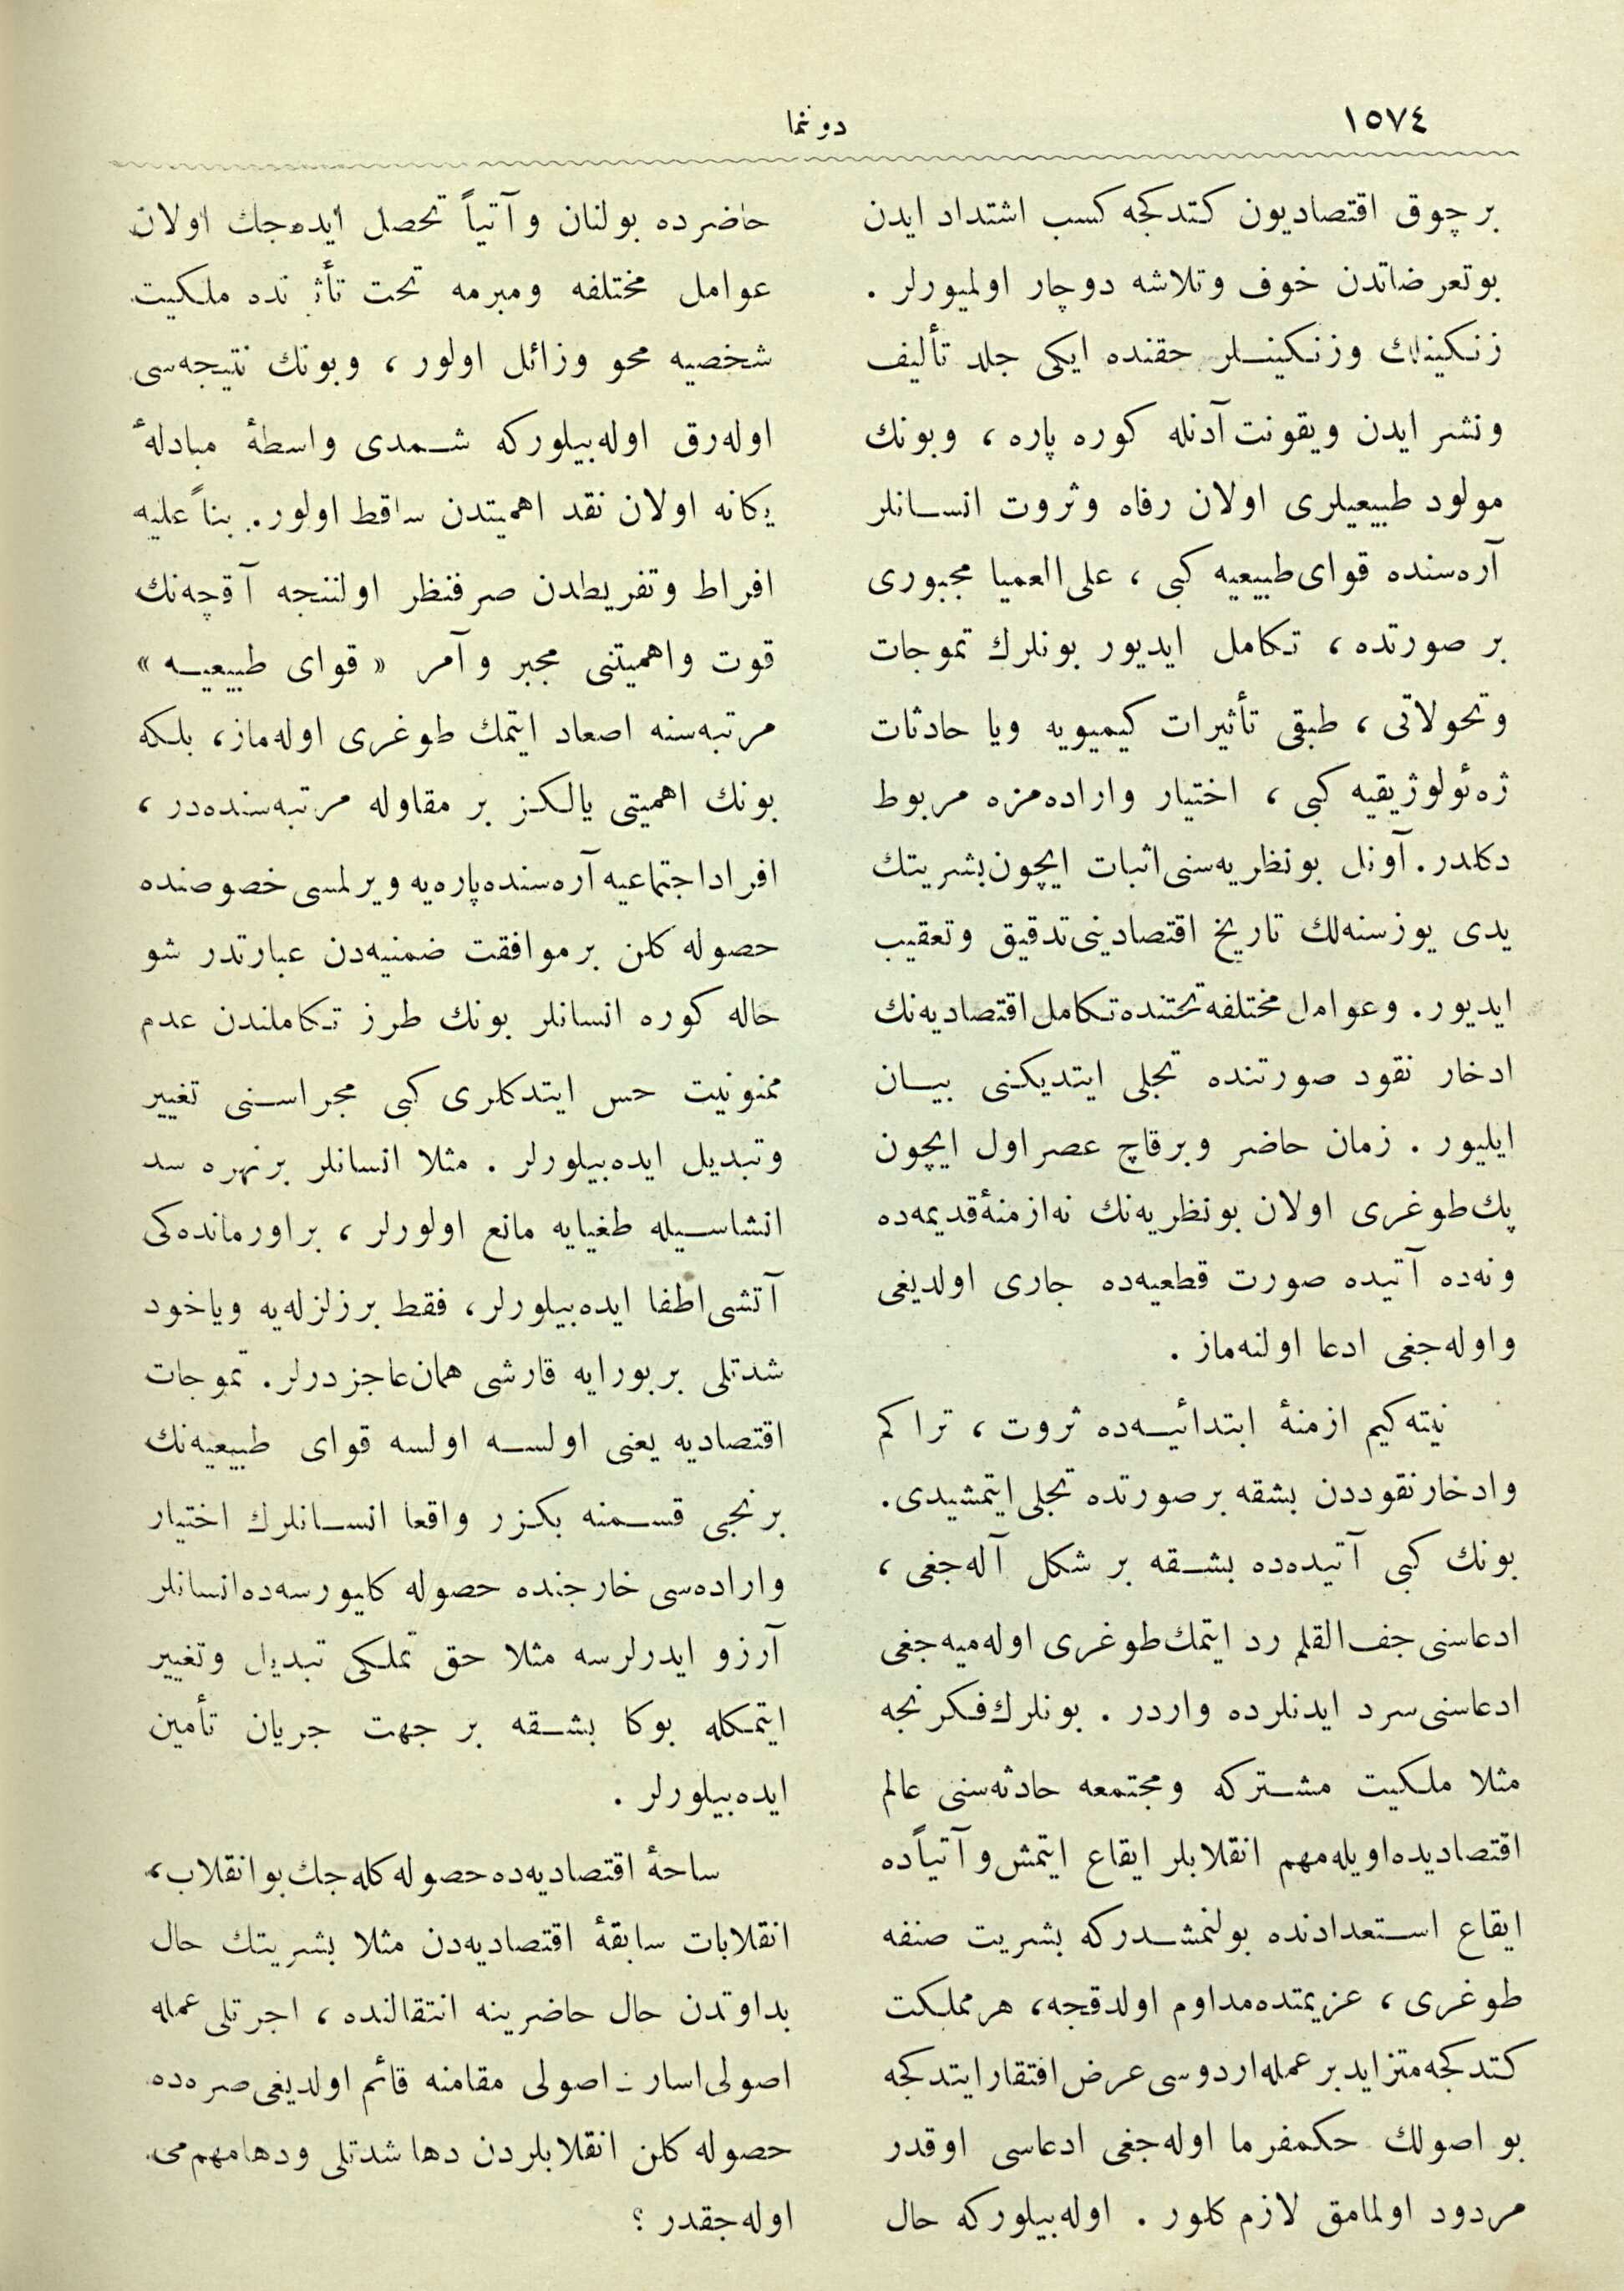 ١٥٧٤
دونما
بر چوق اقتصادیون کتدکجه کسب اشتداد ایدن
بوتعرضاتدن خوف وتلاشه دوچار اولمیورلر .
زنکینلك وزنکینلر حقنده ایکی جلد تألیف
ونشر ایدن ویقونت آدنله کوره پاره ، وبونك
مولود طبیعیلری اولان رفاه وثروت انسانلر
آره‌سنده قوای طبیعیه کبی ، علی‌العمیا مجبوری
بر صورتده ، تکامل ایدیور بونلرك تموجات
وتحولاتی ، طبقی تأثیرات کیمیویه ویا حادثات
ژه‌ئولوژیقیه کبی ، اختیار واراده‌مزه مربوط
دکلدر. آونل بونظریه‌سنی اثبات ایچون بشریتك
یدی یوز سنه‌لك تاریخ اقتصادینی تدقیق وتعقیب
ایدیور. وعوامل مختلفه تحتنده تکامل اقتصادیه‌نك
ادخار نقود صورتنده تجلی ایتدیکنی بیان
ایلیور . زمان حاضر وبرقاچ عصر اول ایچون
پك طوغری اولان بونظریه‌نك نه‌ازمنهٔ قدیمه‌ده
ونه‌ده آتیده صورت قطعیه‌ده جاری اولدیغی
واوله‌جغی ادعا اولنه‌ماز .
نیته‌کیم ازمنهٔ ابتدائیه‌ده ثروت ، تراکم
وادخار نقوددن بشقه بر صورتده تجلی ایتمشیدی.
بونك کبی آتیده‌ده بشقه بر شکل آله‌جغی ،
ادعاسنی جف‌القلم رد ایتمك طوغری اوله‌میه‌جغی
ادعاسنی سرد ایدنلرده واردر . بونلرك فکرنجه
مثلا ملکیت مشترکه ومجتمعه حادثه‌سنی عالم
اقتصادیده اویله مهم انقلابلر ایقاع ایتمش و آتیاً ده
ایقاع استعدادنده بولنمشدرکه بشریت صنفه
طوغری ، عزیمتده مداوم اولدقجه، هر مملکت
کتدکجه متزاید بر عمله اردوسی عرض افتقار ایتدکجه
بو اصولك حکمفرما اوله‌جغی ادعاسی اوقدر
مردود اولمامق لازم کلور . اوله‌بیلورکه حال
حاضرده بولنان و آتیاً تحصل ایده‌جك اولان
عوامل مختلفه ومبرمه تحت ملکیت
شخصیه محو وزائل اولور ، وبونك نتیجه‌سی
اوله‌رق اوله‌بیلورکه شمدی واسطهٔ مبادلهٔ
یکانه اولان نقد اهمیتدن ساقط اولور. بناً علیه
افراط وتفریطدن صرفنظر اولننجه آقچه‌نك
قوت واهمیتنی مجبر وآمر « قوای طبیعیه »
مرتبه‌سنه اصعاد ایتمك طوغری اوله‌ماز، بلکه
بونك اهمیتی یالکز بر مقاوله مرتبه‌سنده‌در ،
افراد اجتماعیه آره‌سنده پاره‌یه ویرلمسی خصوصنده
حصوله کلن بر موافقت ضمنیه‌دن عبارتدر شو
حاله کوره انسانلر بونك طرز تکاملندن عدم
ممنونیت حس ایتدکلری کبی مجراسنی تغییر
وتبدیل ایده‌بیلورلر . مثلا انسانلر بر نهره سد
انشاسیله طغیایه مانع اولورلر ، بر اورمانده‌کی
آتشی اطفا ایده‌بیلورلر، فقط بر زلزله‌یه ویاخود
شدتلی بر بورایه قارشی همان عاجز درلر. تموجات
اقتصادیه یعنی اولسه اولسه قوای طبیعیه‌نك
برنجی قسمنه بکزر واقعا انسانلرك اختیار
واراده‌سی خارجنده حصوله کلیورسه‌ده انسانلر
آرزو ایدرلرسه مثلا حق تملکی تبدیل وتغییر
ایتمکله بوکا بشقه بر جهت جریان تأمین
ایده‌بیلورلر .
ساحهٔ اقتصادیه‌ده حصوله کله‌جك بو انقلاب،
انقلابات سابقهٔ اقتصادیه‌دن مثلا بشریتك حال
بداوتدن حال حاضرینه انتقالنده ، اجرتلی عمله
اصولی اسارت اصولی مقامنه قائم اولدیغی صره‌ده
حصوله کلن انقلابلردن دها شدتلی ودها مهم می
اوله‌جقدر ؟